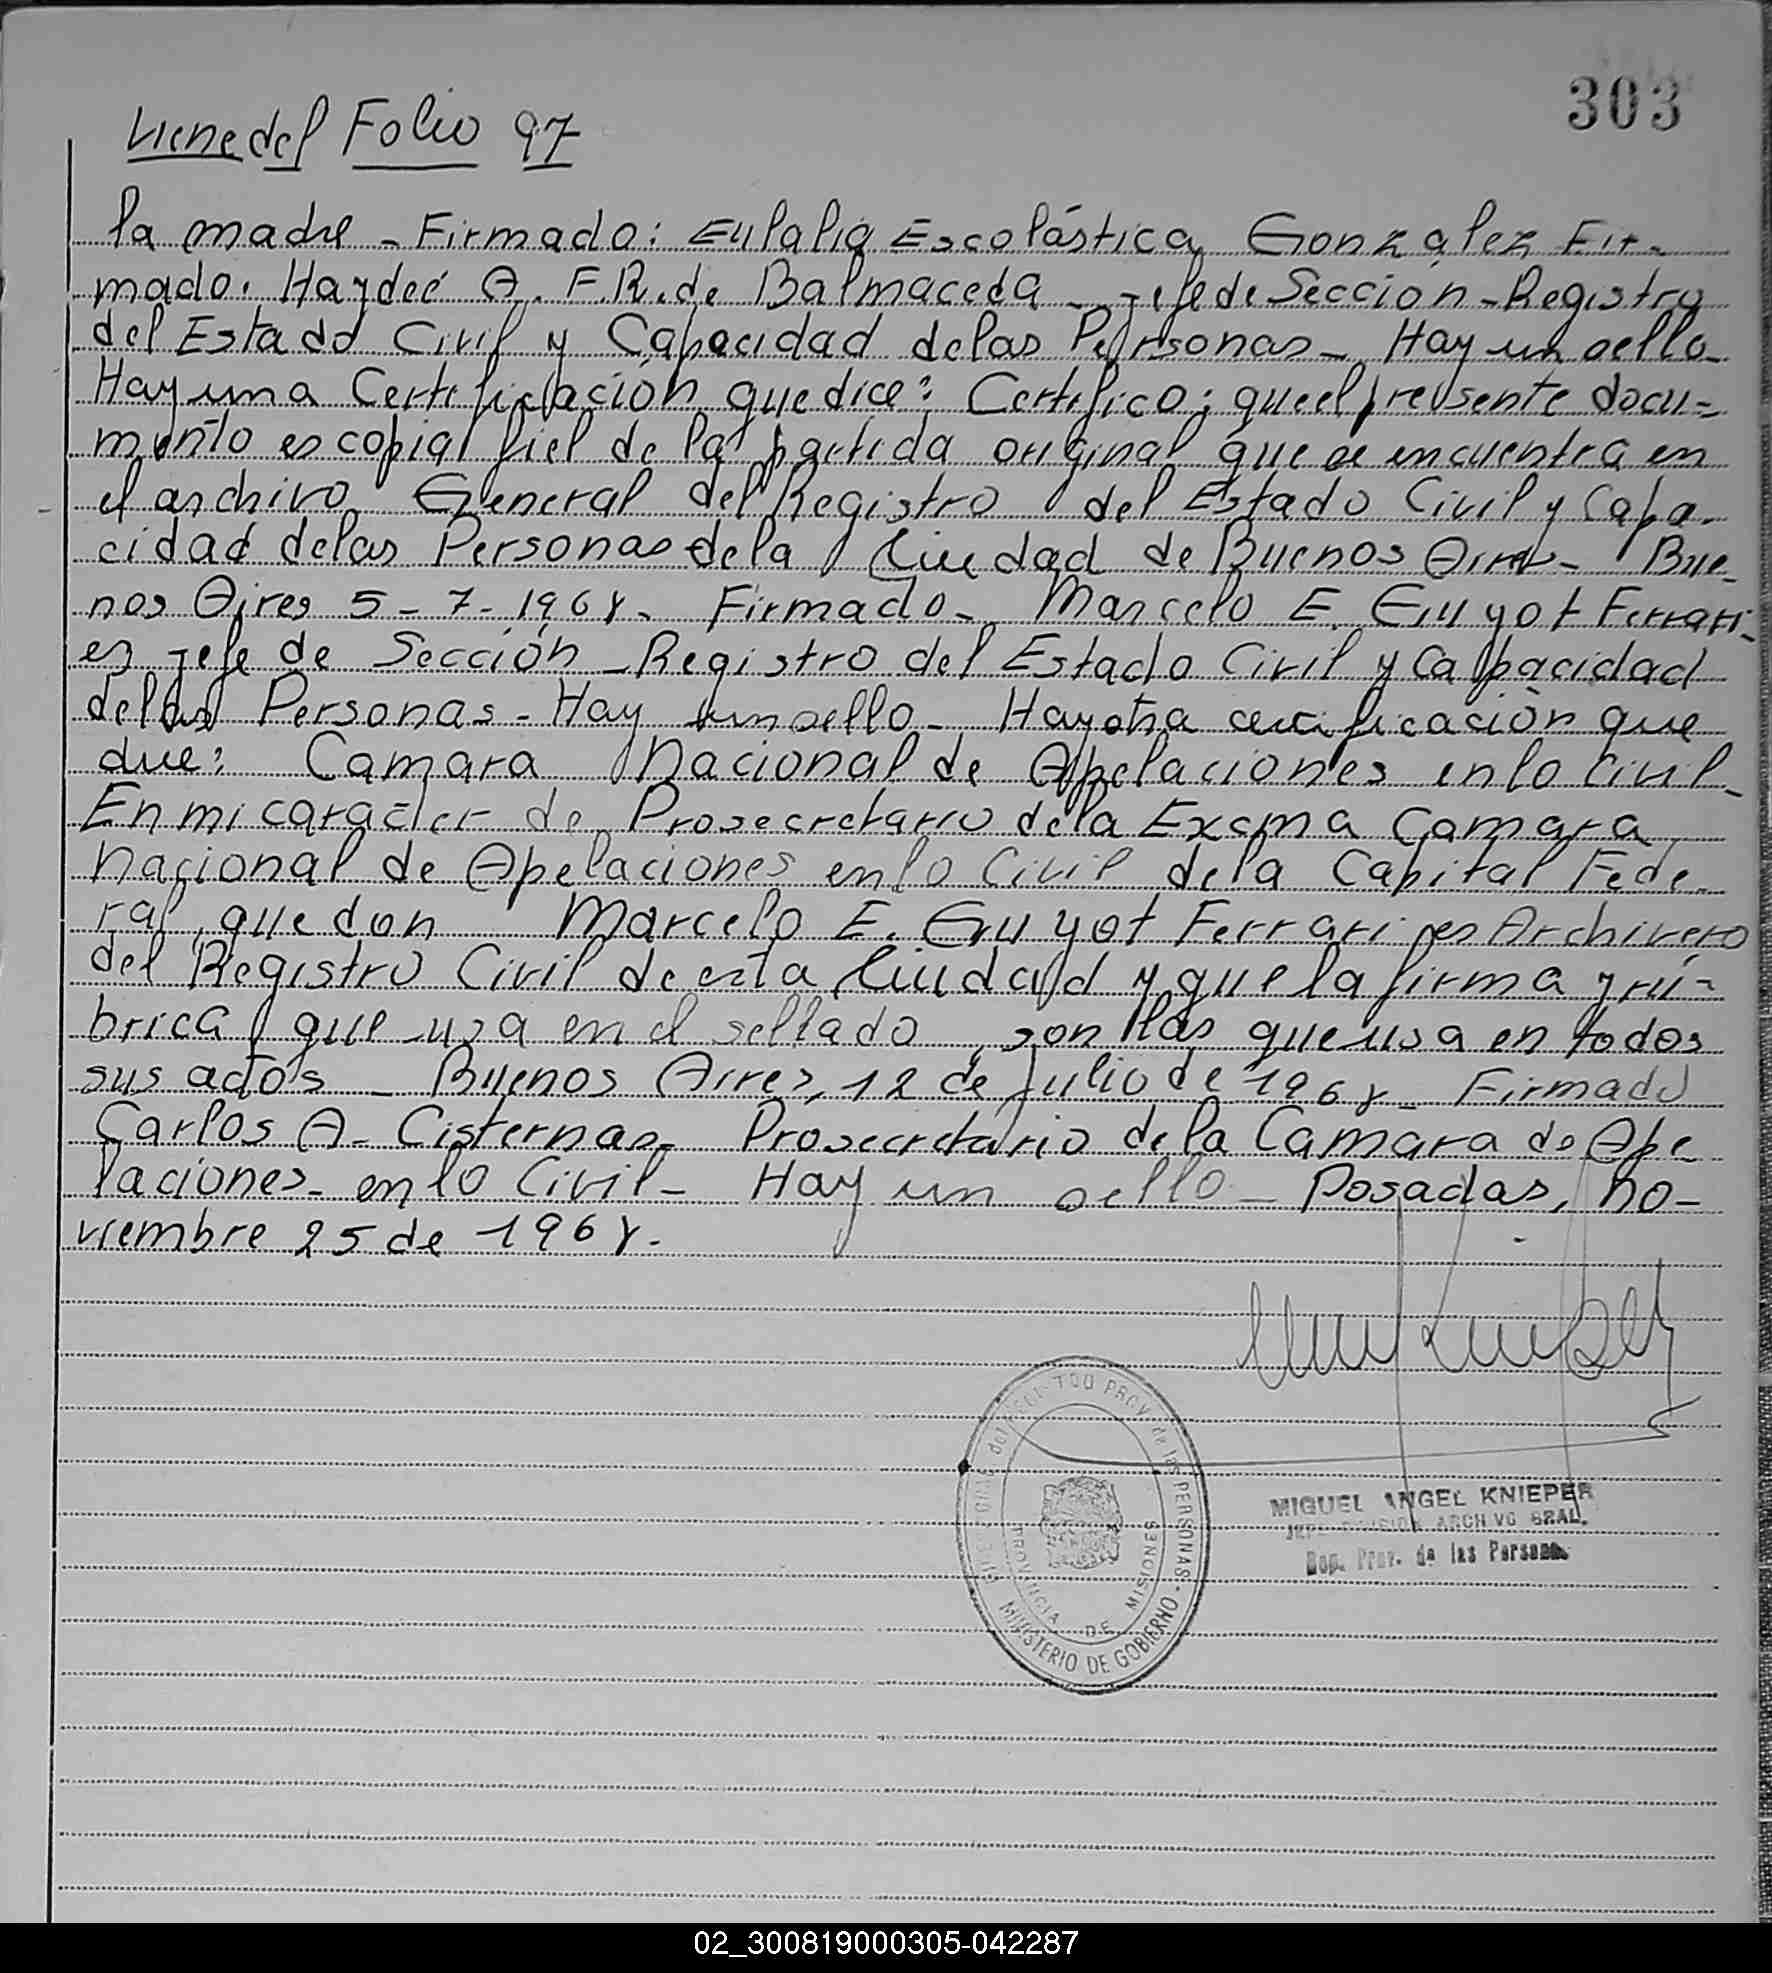 303
Viene del Folio 97
la madre - Firmado: Eulalia Escolástica Gonzalez Fir-
mado. Haydeé A. F.R. de Balmaceda - Jefe de Sección - Registro
del Estado Civil y Capacidad de las Personas - Hay un sello
Hay una Certificación que dice: Certifico; que el presente docu-
mento es copia fiel de la partida original que se encuentra en
el archivo General del Registro del Estado Civil y Capa-
cidad de las Personas de la Ciudad de Buenos Aires - Bue-
nos Aires 5-7-1968- Firmado - Marcelo E. Guyot Ferrari-
es Jefe de Sección - Registro del Estado Civil y Capacidad
de las Personas - Hay un sello - Hay otra certificación que
dice: Camara Nacional de Apelaciones en lo Civil -
En mi caracter de Prosecretario de la Excma Camara
Nacional de Apelaciones en lo Civil de la Capital Fede-
ral, que don Marcelo E. Guyot Ferrari es Archivero
del Registro Civil de esta Ciudad y que la firma y rú-
brica que usa en el sellado son las que usa en todos
sus actos - Buenos Aires, 12 de Julio de 1968 - Firmado
Carlos A. Cisternas - Prosecretario de la Camara de Ape-
laciones - en lo Civil - Hay un sello - Posadas, no-
viembre 25 de 1968.
MIGUEL ANGEL KNIEPER
JEFE DIVISION ARCHIVO GRAL.
Dep. Prov. de las Personas
PROV. de las PERSONAS
MINISTERIO DE GOBIERNO
PROVINCIA DE MISIONES
02_300819000305-042287